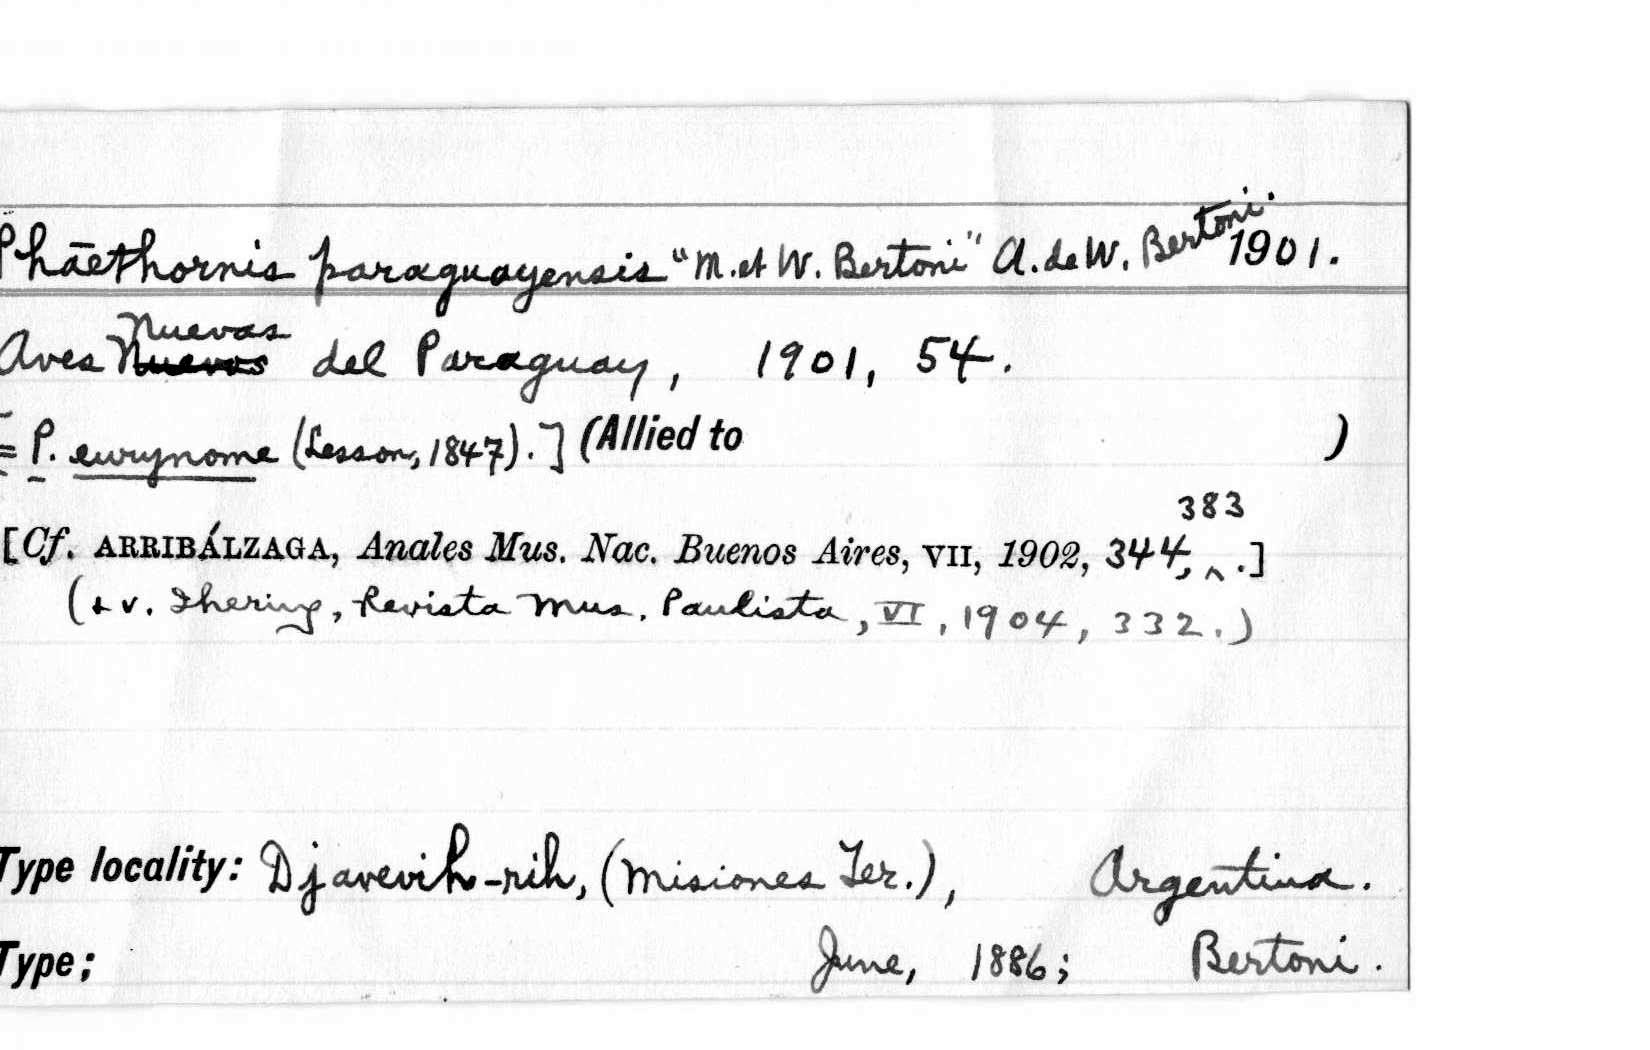 Phāethornis paraguayensis "M. et W. Bertoni" A. de W. Bertoni. 1901.
Nuevas
Aves Nuevas del Paraguay, 1901, 54.
= P. eurynome (Lesson, 1847).] (Allied to )
383
[Cf. ARRIBÁLZAGA, Anales Mus. Nac. Buenos Aires, VII, 1902, 344, ^ .]
(+ v. Ihering, Revista Mus. Paulista, VI, 1904, 332.)
Type locality: Djavevih-rih, (Misiones Ter.), Argentina.
Type; June, 1886; Bertoni.